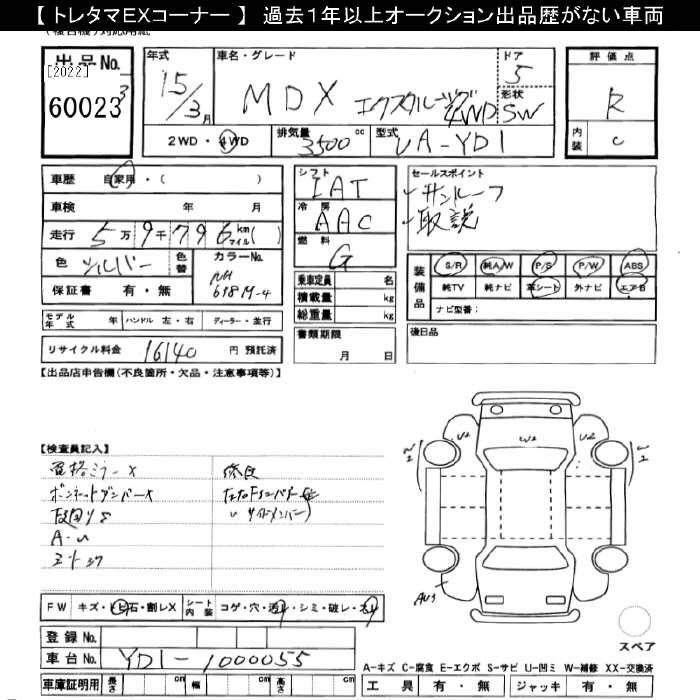 【 トレタマEXコーナー 】 過去1年以上オークション出品歴がない車両
出品No.
[2022]
60023
3
年式
15/3月
車名・グレード
MDX エクスクルーシブ 4WD
ドア
5
形状
SW
評価点
R
内装
C
2WD・4WD
排気量
3500 cc
型式
UA-YD1
車歴 自家用・( )
車検 年 月
走行 5万9千796 km マイル( )
色 シルバー
色替
カラーNo.
NH
618M-4
保証書 有・無
シフト
IAT
冷房
AAC
燃料
G
乗車定員 名
積載量 kg
総重量 kg
セールスポイント
サンルーフ
取説
装備品
S/R 純A/W P/S P/W ABS
純TV 純ナビ 革シート 外ナビ エアB
ナビ型番:
モデル年式 年 ハンドル 左・右 ディーラー・並行
リサイクル料金 16140 円 預託済
書類期限
月 日
後日品
【出品店申告欄(不良箇所・欠品・注意事項等)】
【検査員記入】
電格ミラーX
ボンネットダンパーX
A・U
修復
サイドメンバー
U2
W2
U2
AU1
FW キズ・トビ石・割レX
シート内装 コゲ・穴・汚レ・シミ・破レ・スレ
登録No.
車台No. YD1-1000055
スペア
A-キズ C-腐食 E-エクボ S-サビ U-凹ミ W-補修 XX-交換済
車庫証明用 長さ cm 幅 cm 高さ cm
工具 有・無 ジャッキ 有・無